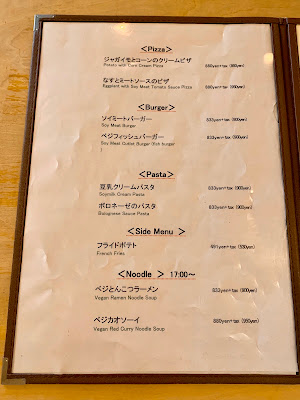 ＜Pizza＞
ジャガイモとコーンのクリームピザ
Potato with Corn Cream Pizza
880yen+tax (980yen)
なすとミートソースのピザ
Eggplant with Soy Meat Tomato Sauce Pizza
＜Burger＞
ソイミートバーガー
Soy Meat Burger
833yen+tax (900yen)
ベジフィッシュバーガー
Soy Meat Cutlet Burger (fish burger
)
833yen+tax (900yen)
＜Pasta＞
豆乳クリームパスタ
Soymilk Cream Pasta
833yen+tax (900yen)
ボロネーゼのパスタ
Bolognese Sauce Pasta
833yen+tax (900yen)
＜Side Menu ＞
フライドポテト
French Fries
491yen+tax (530yen)
＜Noodle ＞ 17:00～
ベジとんこつラーメン
Vegan Ramen Noodle Soup
833yen+tax (900yen)
ベジカオソーイ
Vegan Red Curry Noodle Soup